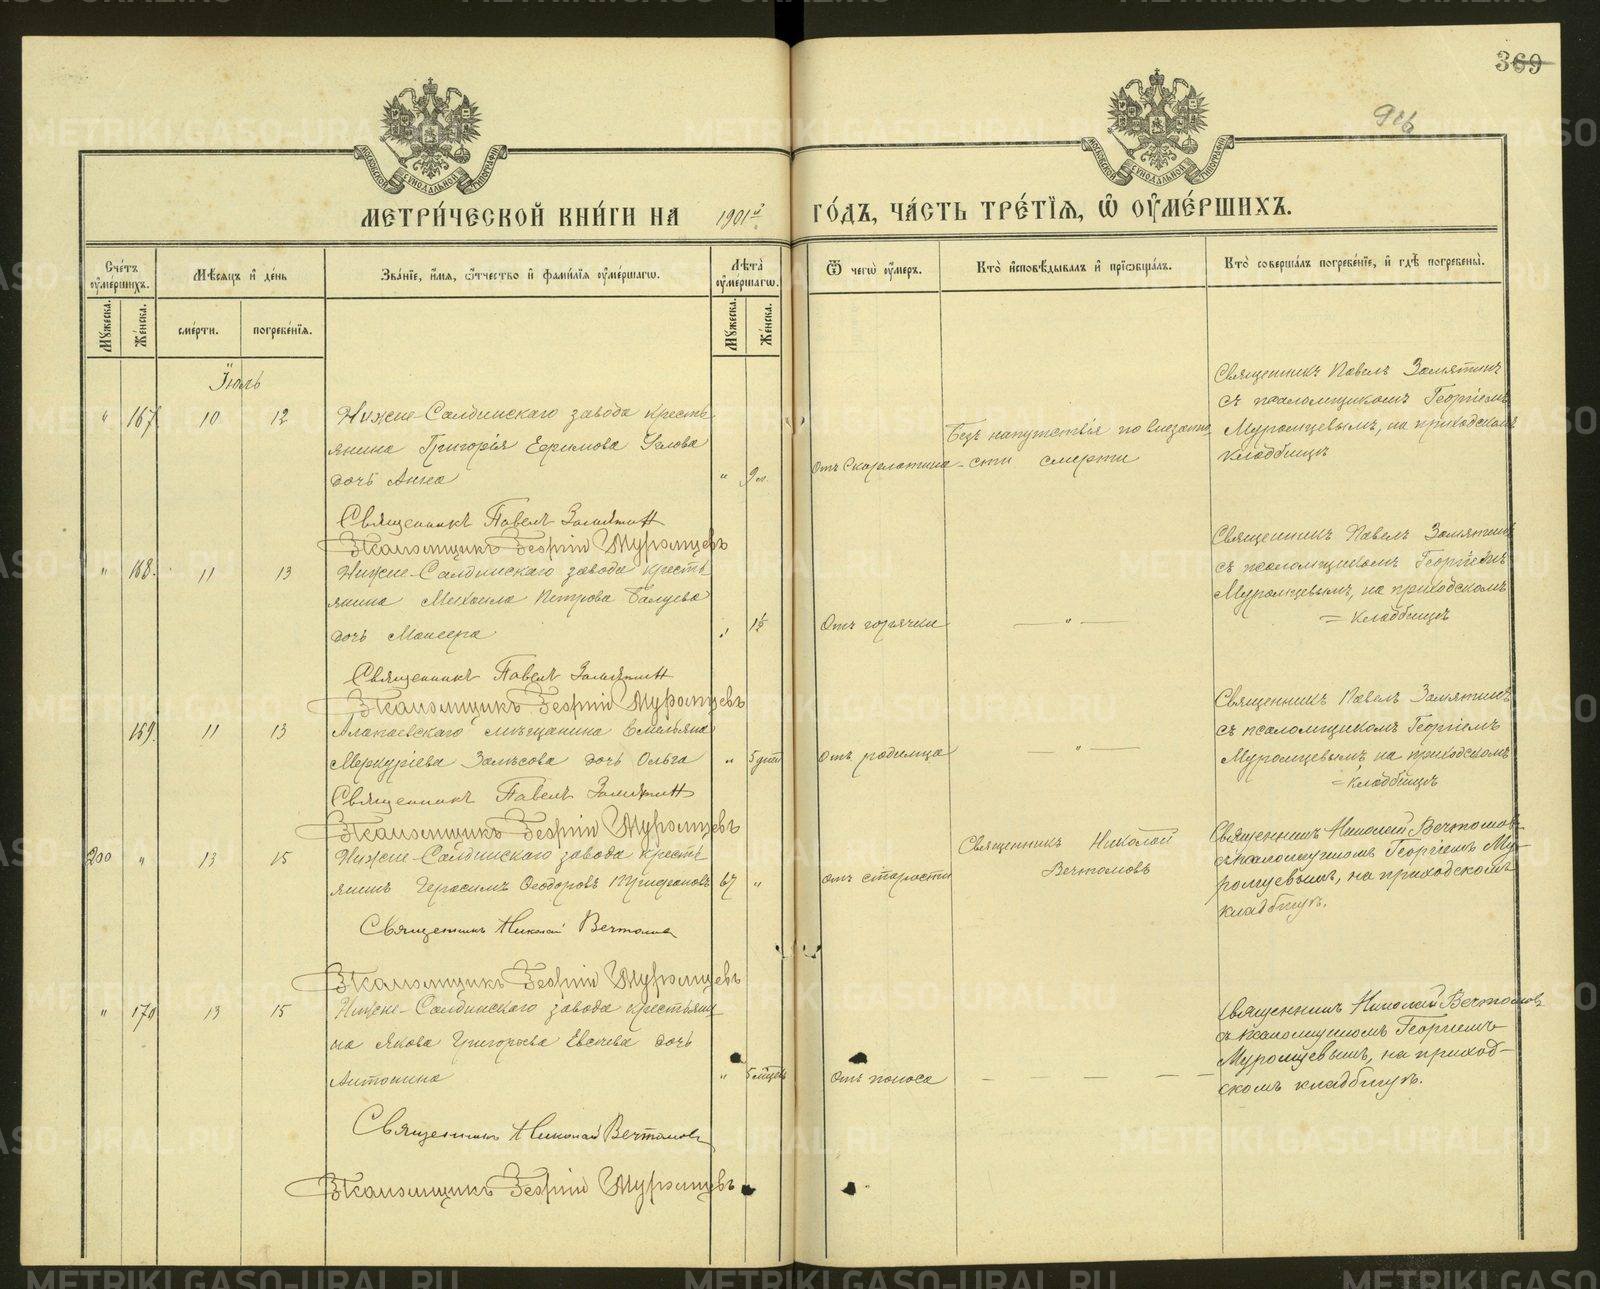 369
МЕТРИ́ЧЕСКОЙ КНИ́ГИ НА 1901й ГО́ДЪ, ЧА́СТЬ ТРЕ́ТЇѦ, Ѡ҆ ОУ҆МЕ́РШИХЪ.
МОСКОВСКОЙ СѴНОДАЛЬНОЙ ТИПОГРАФІИ
МОСКОВСКОЙ СѴНОДАЛЬНОЙ ТИПОГРАФІИ
Сче́тъ оу҆ме́ршихъ.
Мѣ́сѧцъ и҆ де́нь
Зва́нїе, и҆́мѧ, ѻ҆́тчество и҆ фами́лїѧ оу҆ме́ршагѡ.
Лѣ́та оу҆ме́ршагѡ.
Ѿ чегѡ̀ оу҆́меръ.
Кто̀ и҆сповѣ́дывалъ и҆ прїѡбща́лъ.
Кто̀ соверша́лъ погребе́нїе, и҆ гдѣ̀ погребены̀.
Мꙋ́жеска.
Же́нска.
сме́рти.
погребе́нїѧ.
Мꙋ́жеска.
Же́нска.
Іюль
" 167 10 12
Нижне-Салдинскаго завода кресть-
янина Григорія Ефимова
дочь Анна
" 9 м.
Отъ скарлатина
Безъ напутствія по внезапно-
сти смерти
Священникъ Павелъ Замятинъ
съ псаломщикомъ Георгіемъ
Муромцевымъ, на приходскомъ
кладбищѣ
Священникъ Павелъ Замятинъ
Псаломщикъ Георгій Муромцевъ
" 168. 11 13
Нижне-Салдинскаго завода кресть-
янина Михаила Петрова Балуева
дочь
" 1½
Отъ горячки
— " —
Священникъ Павелъ Замятинъ
съ псаломщикомъ Георгіемъ
Муромцевымъ, на приходскомъ
= кладбищѣ
Священникъ Павелъ Замятинъ
Псаломщикъ Георгій Муромцевъ
169. 11 13
Алапаевскаго мѣщанина Емельяна
Меркуріева дочь Ольга
" 5 дней
Отъ родимца
— " —
Священникъ Павелъ Замятинъ
съ псаломщикомъ Георгіемъ
Муромцевымъ на приходскомъ
= кладбищѣ
Священникъ Павелъ Замятинъ
Псаломщикъ Георгій Муромцевъ
200 " 13 15
Нижне-Салдинскаго завода кресть-
янинъ Герасимъ Ѳеодоровъ
67 "
отъ старости
Священникъ Николай
Вечтомовъ
Священникъ Николай Вечтомовъ
съ псаломщикомъ Георгіемъ Му-
ромцевымъ, на приходскомъ
кладбищѣ.
Священникъ Николай Вечтомовъ
Псаломщикъ Георгій Муромцевъ
" 170 13 15
Нижне-Салдинскаго завода крестьяни-
на Якова Григорьева Евсѣева дочь
Антонина
" 5 мѣсцев
Отъ поноса
— — — —
Священникъ Николай Вечтомовъ
съ псаломщикомъ Георгіемъ
Муромцевымъ, на приход-
скомъ кладбищѣ.
Священникъ Николай Вечтомовъ
Псаломщикъ Георгій Муромцевъ
METRIKI.GASO-URAL.RU